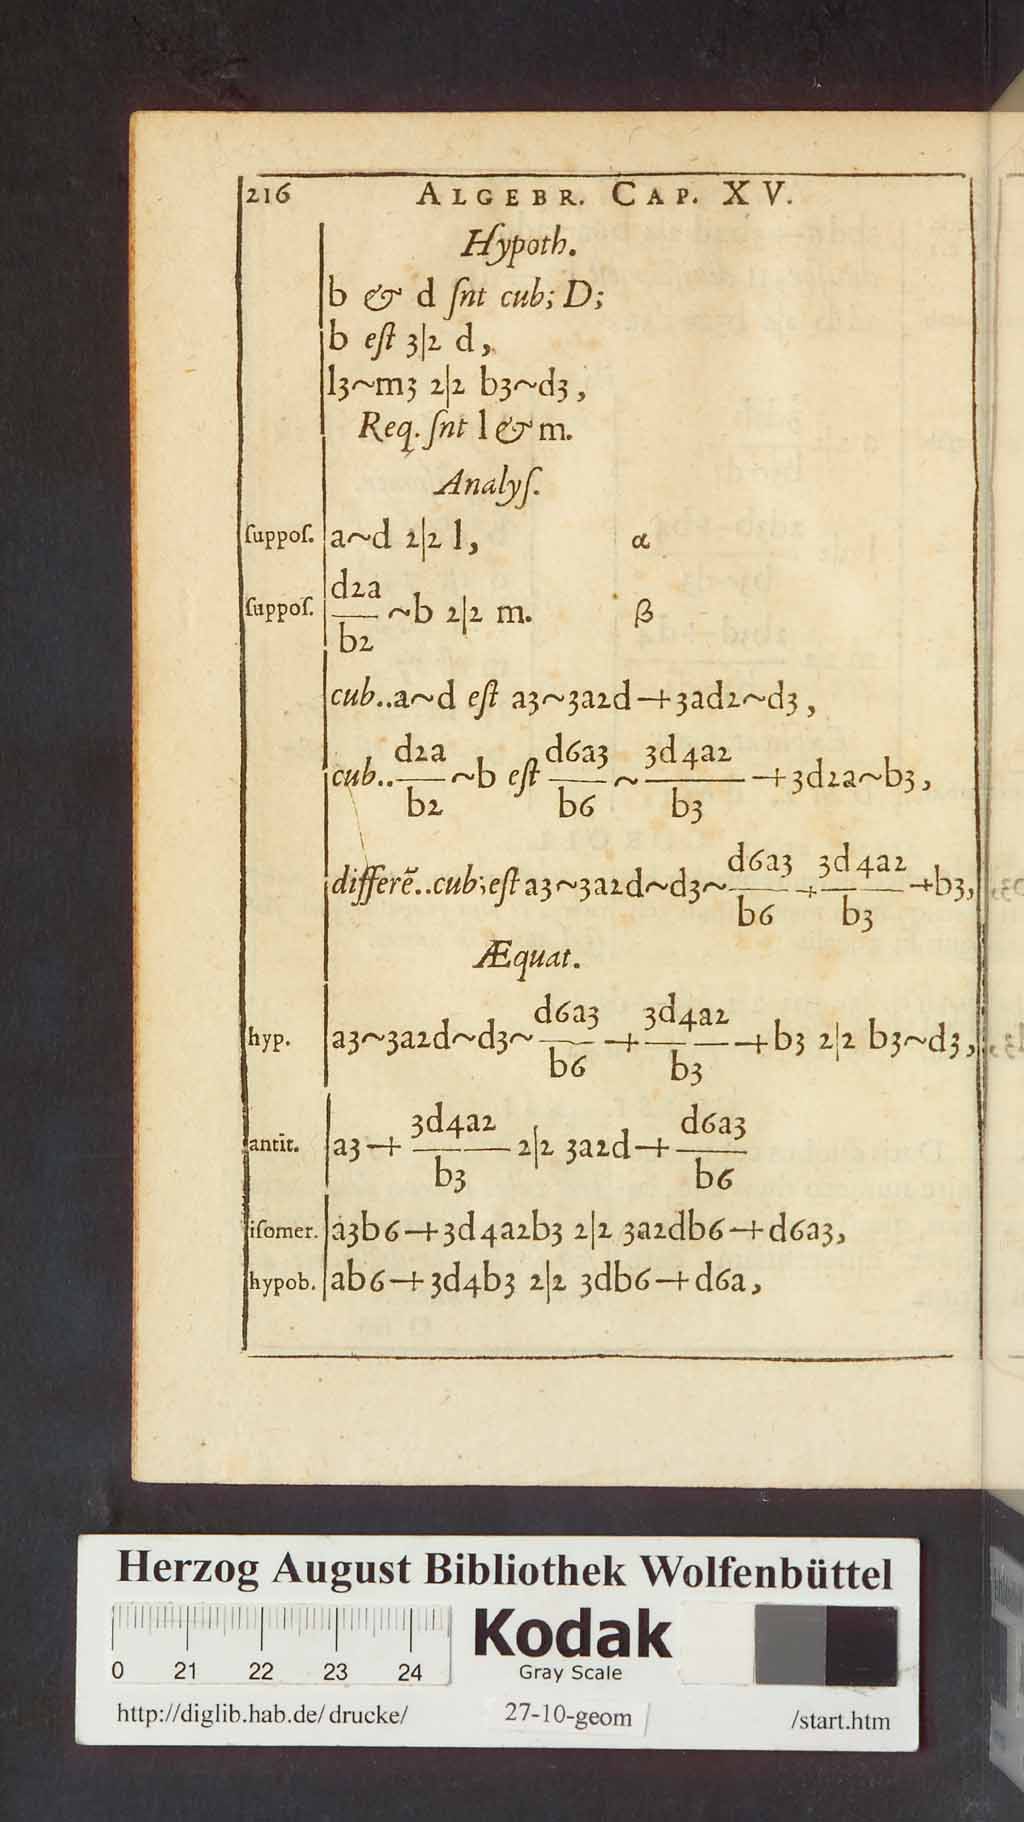 216 ALGEBR. CAP. XV.
Hypoth.
b & d ſnt cub; D;
b eſt 3|2 d,
l3~m3 2|2 b3~d3,
Req. ſnt l & m.
Analyſ.
ſuppoſ. a~d 2|2 l, α
d2a
ſuppoſ. —— ~b 2|2 m. β
b2
cub..a~d eſt a3~3a2d+3ad2~d3,
d2a d6a3 3d4a2
cub..——~b eſt —— ~ —— +3d2a~b3,
b2 b6 b3
d6a3 3d4a2
differē..cub;eſt a3~3a2d~d3~——+——+b3,
b6 b3
Æquat.
d6a3 3d4a2
hyp. a3~3a2d~d3~——+——+b3 2|2 b3~d3,
b6 b3
3d4a2 d6a3
antit. a3+——2|2 3a2d+——
b3 b6
iſomer. a3b6+3d4a2b3 2|2 3a2db6+d6a3,
hypob. ab6+3d4b3 2|2 3db6+d6a,
Herzog August Bibliothek Wolfenbüttel
Kodak
Gray Scale
0 21 22 23 24
http://diglib.hab.de/drucke/ 27-10-geom /start.htm